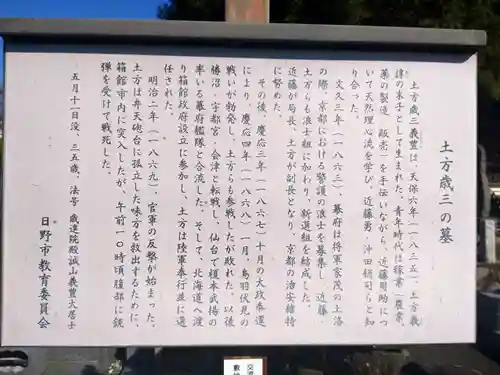 土方歳三の墓
土方歳三義豊は、天保六年（一八三五）、土方義
諄の末子として生まれた。青年時代は稼業（農業、
薬の製造・販売）を手伝いながら、近藤周助につ
いて天然理心流を学び、近藤勇、沖田総司らと知
り合った。
文久三年（一八六三）、幕府は将軍家茂の上洛
の際、京都における警護の浪士を募集し、近藤・
土方らも浪士組に加わり、新選組を結成した。
近藤が局長、土方が副長となり、京都の治安維持
に努めた。
その後、慶応三年（一八六七）十月の大政奉還
により、慶応四年（一八六八）一月、鳥羽伏見の
戦いが勃発し、土方らも参戦したが敗れた。以後
勝沼・宇都宮・会津と転戦し、仙台で榎本武揚の
率いる幕府艦隊と合流した。そして、北海道へ渡
り箱館政府設立に参加し、土方は陸軍奉行並に選
任された。
明治二年（一八六九）、官軍の反撃が始まった。
土方は弁天砲台に孤立した味方を救出するために、
箱館市内に突入したが、午前一〇時頃腹部に銃
弾を受けて戦死した。
五月十一日没、三五歳、法号 歳進院殿誠山義豊大居士
日野市教育委員会